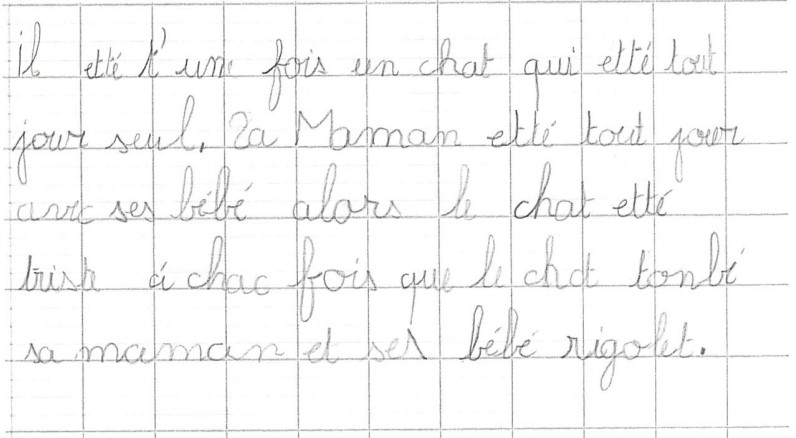 il etté t'une fois un chat qui etté tout
jour seul. Sa Maman etté tout jour
avec ses bébé alors le chat etté
triste à chac fois que le chat tonbé
sa maman et ses bébé rigolet.